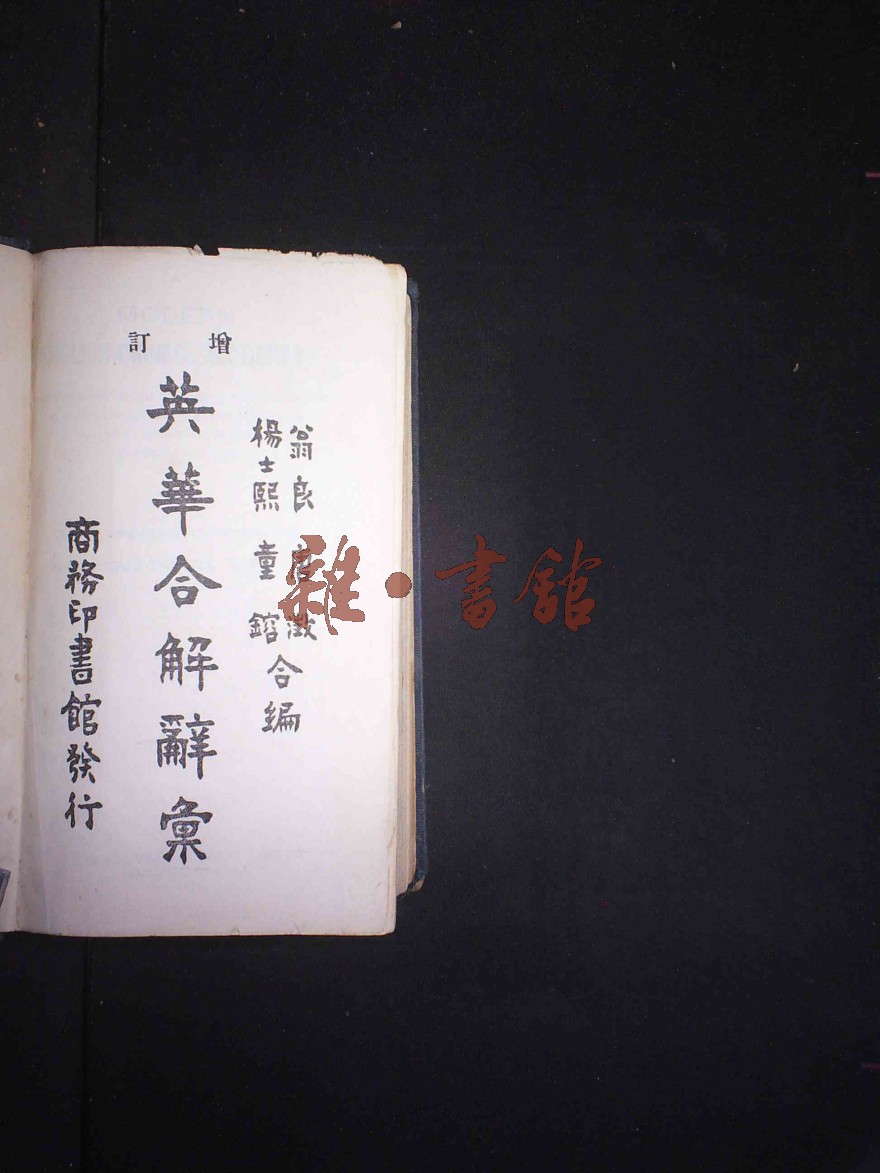 增訂
翁良
楊士熙 童
合編
英華合解辭彙
商務印書館發行
雜·書館